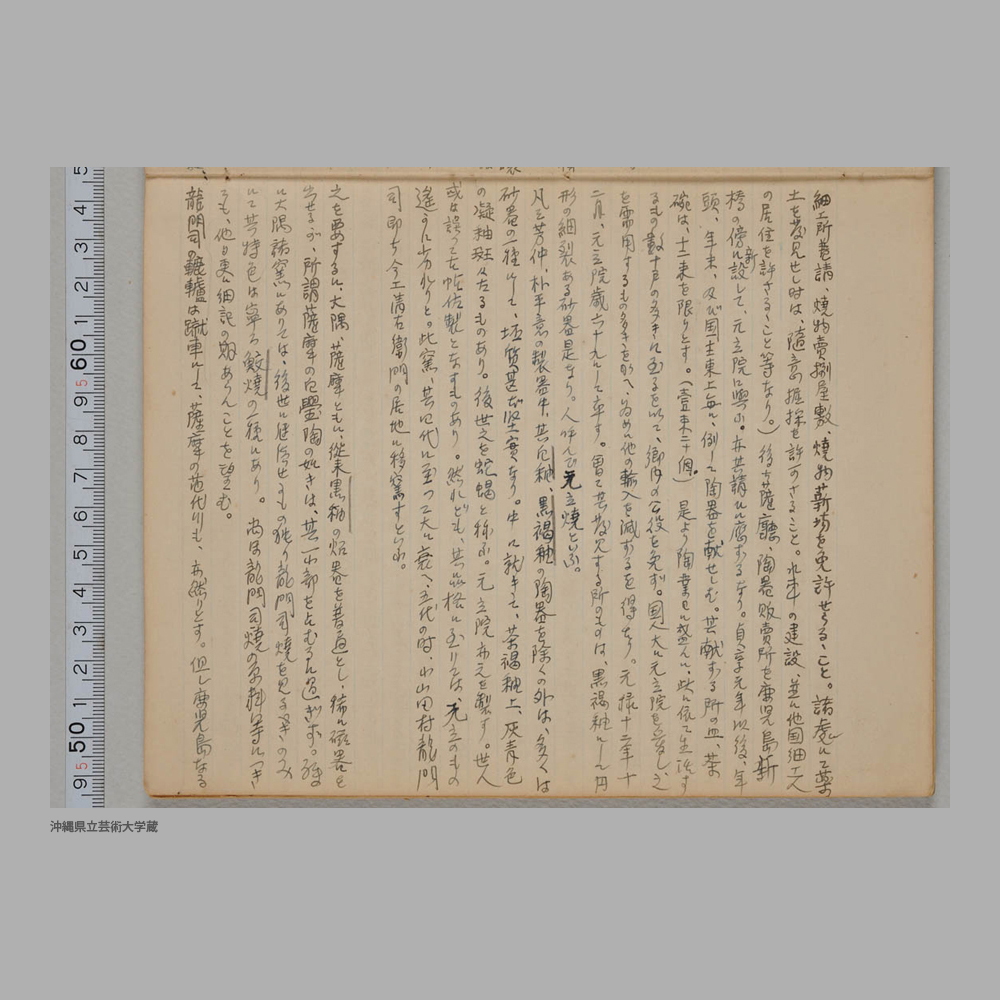 細工所普請、焼物売捌屋敷、焼物薪場を免許せらるゝこと。諸處にて薬
土を發見せし時は、随意掘採を許可さるゝこと。水車の建設、並に他国細工人
の居住を許さるゝこと等なり。)後ち薩廳、陶器販賣所を鹿児島新
橋の傍に新設して、元立院に與ふ。亦其請ひに應ずるなり。貞享元年以後、年
頭、年末、及び国主東上毎に、例して陶器を献せしむ。其献ずる所の皿、茶
碗は、十二束を限りとす。(壹束二十個)。是より陶業日に盛んに、此に依て生活す
るもの數十戸の多きに至るを以て、郷内の公役を免ず。国人大に元立院を愛し之
を需用するもの多きを加へ、為めに他の輸入を減ずるを得たり。元禄十二年十
二月、元立院歳六十九にして卒す。曽て其發見する所のものは、黒褐釉にして円
形の細裂ある砂器是なり。人呼んで元立焼といふ。
凡そ芳仲、朴平意の製器中、其白釉、黒褐釉の陶器を除くの外は、多くは
砂器の一種にして、坯質甚だ堅実なり。中に就きて、茶褐釉上、灰青色
の凝釉斑々たるものあり。後世之を蛇蝎と称ふ。元立院亦之を製す。世人
或は誤つて古帖佐製となすものあり。然れども、其品格に至りては、元立のもの
遙かに劣れりと。此窯、其四代に至つて大に衰へ、五代の時、小山田村龍門
司即ち今工清右衛門の居地に移窯すといふ。
之を要するに、大隅薩摩ともに、従来黒釉の炻器を普通とし、稀に磁器を
出せるが、所謂薩摩の白罌陶の如きは、其一小部を占むるに過ぎず。殊
に大隅諸窯にありては、後世に継続せしもの独り龍門司焼を見るべきのみ
にて其特色は寧ろ鮫焼の種にあり。尚ほ龍門司焼の原料等につき
ても、他日更に細記の期あらんことを望む。
龍門司の轆轤は蹴車にして、薩摩の苗代川も、亦然りとす。但し鹿児島なる
5 4 3 2 1 60 9 8 7 6 5 4 3 2 1 50 9
沖縄県立芸術大学蔵